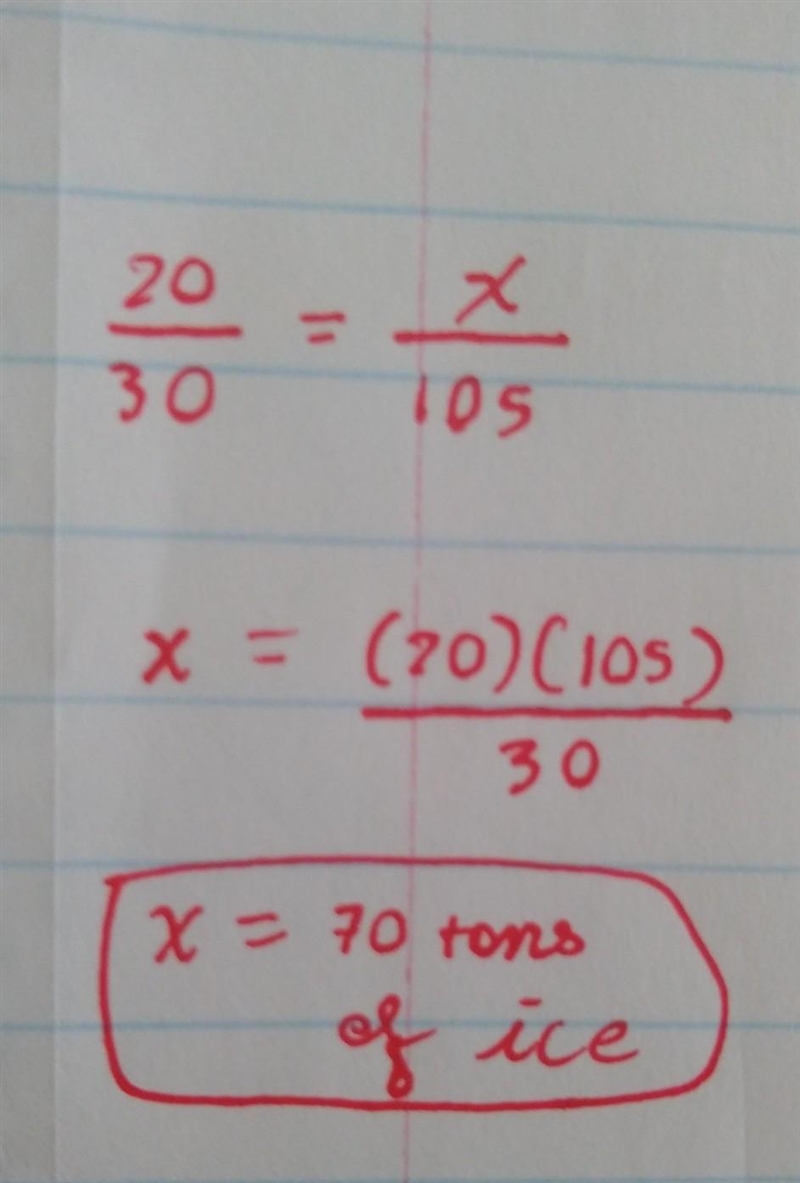 20/30 = x/105
x = (20)(105)/30
x = 70 tons
of ice